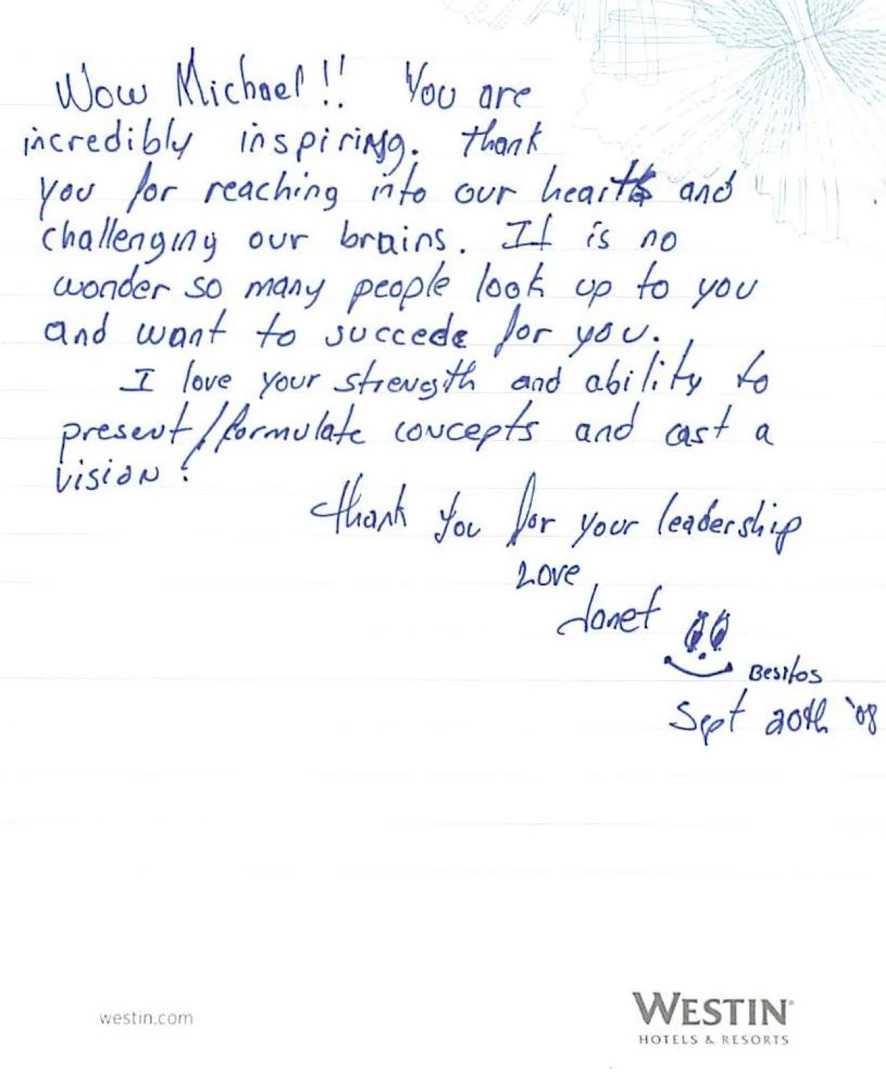 Wow Michael!! You are
incredibly inspiring. thank
you for reaching into our hearts and
challenging our brains. It is no
wonder so many people look up to you
and want to succede for you.
I love your strength and ability to
present/formulate concepts and cast a
vision!
thank you for your leadership
Love
Janet
Besitos
Sept 20th '08
westin.com
WESTIN®
HOTELS & RESORTS